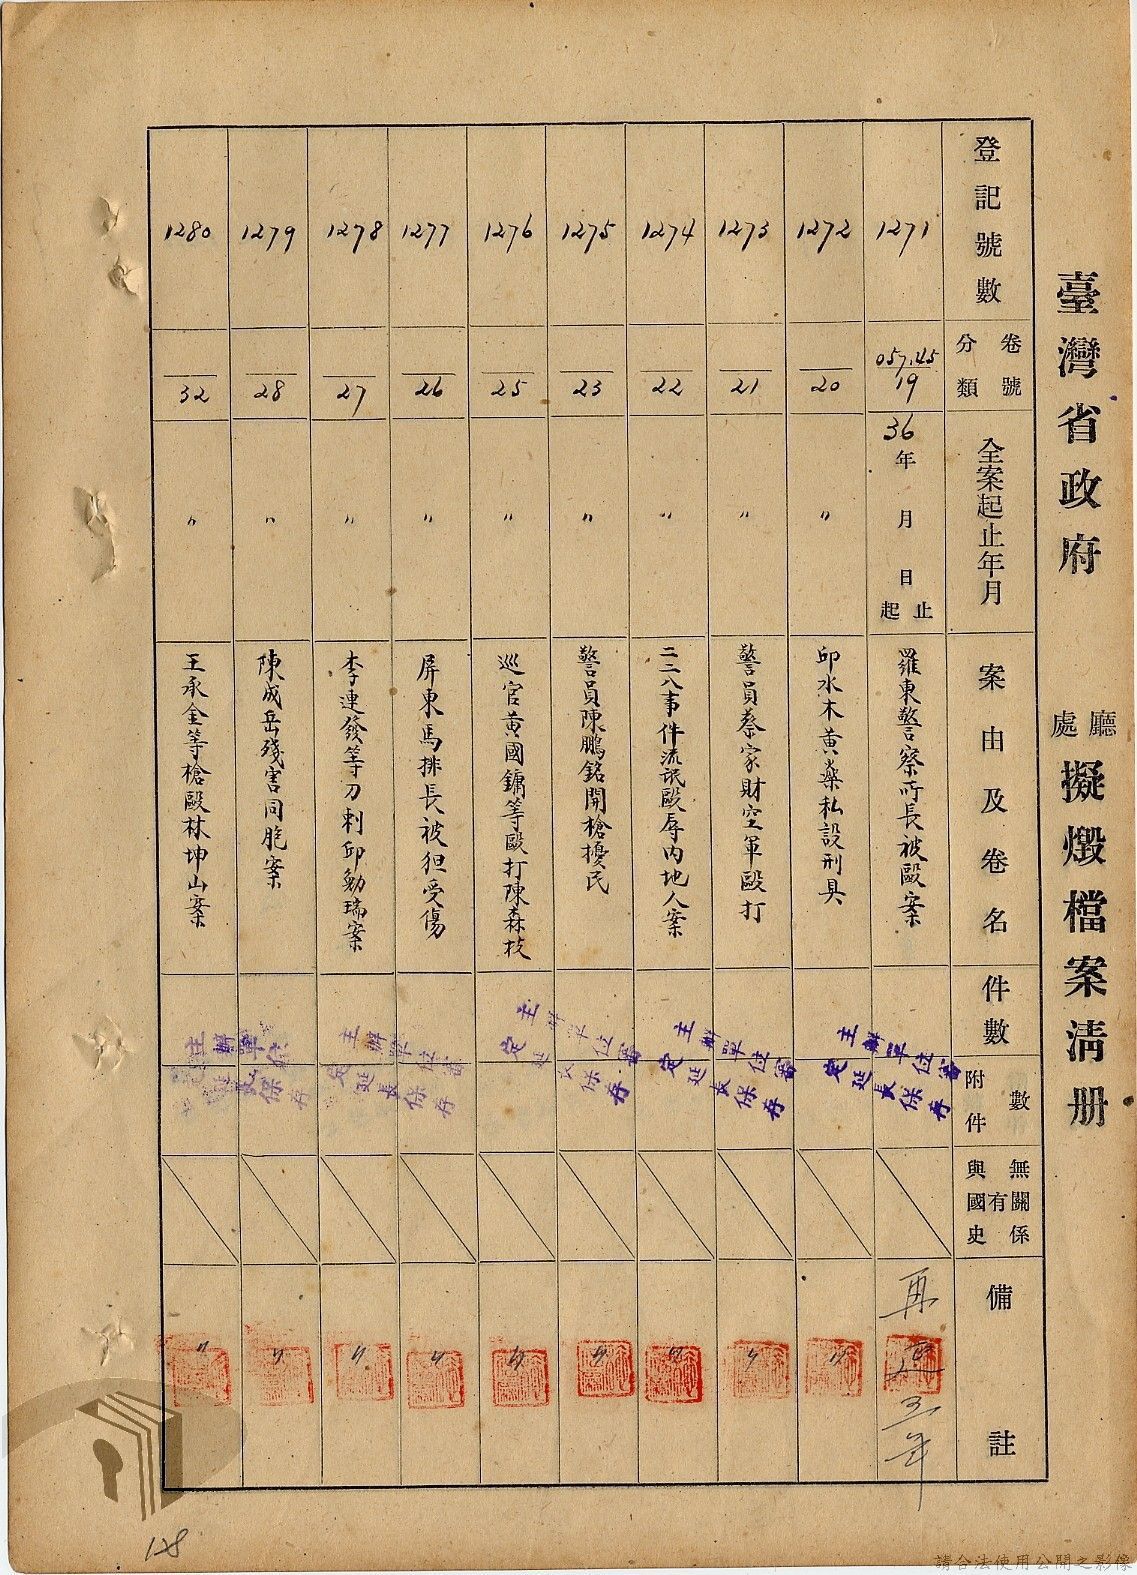 臺灣省政府
廳
處
擬燬檔案清册
登記號數
卷號
分類
全案起止年月
案由及卷名
件數
附件
數
無
與
有關係
國史
備註
1271
057.45
19
36年 月 日
止
起
羅東警察所長被毆案
再
延
三年
1272
20
〃
邱水木黃燊私設刑具
〃
1273
21
〃
警員蔡家財空軍毆打
〃
1274
22
〃
二二八事件流氓毆辱內地人案
〃
1275
23
〃
警員陳鵬銘開槍擾民
〃
1276
25
〃
巡官黃國鏞等毆打陳森枝
〃
1277
26
〃
屏東馬排長被狙受傷
〃
1278
27
〃
李連發等刀刺邱勳瑞案
〃
1279
28
〃
陳成岳殘害同胞案
〃
1280
32
〃
王承金等槍毆林坤山案
〃
主辦單位審
定延長保存
主辦單位審
定延長保存
主辦單位審
定延長保存
主辦單位審
定延長保存
主辦單位
延長保存
128
請合法使用公開之影像